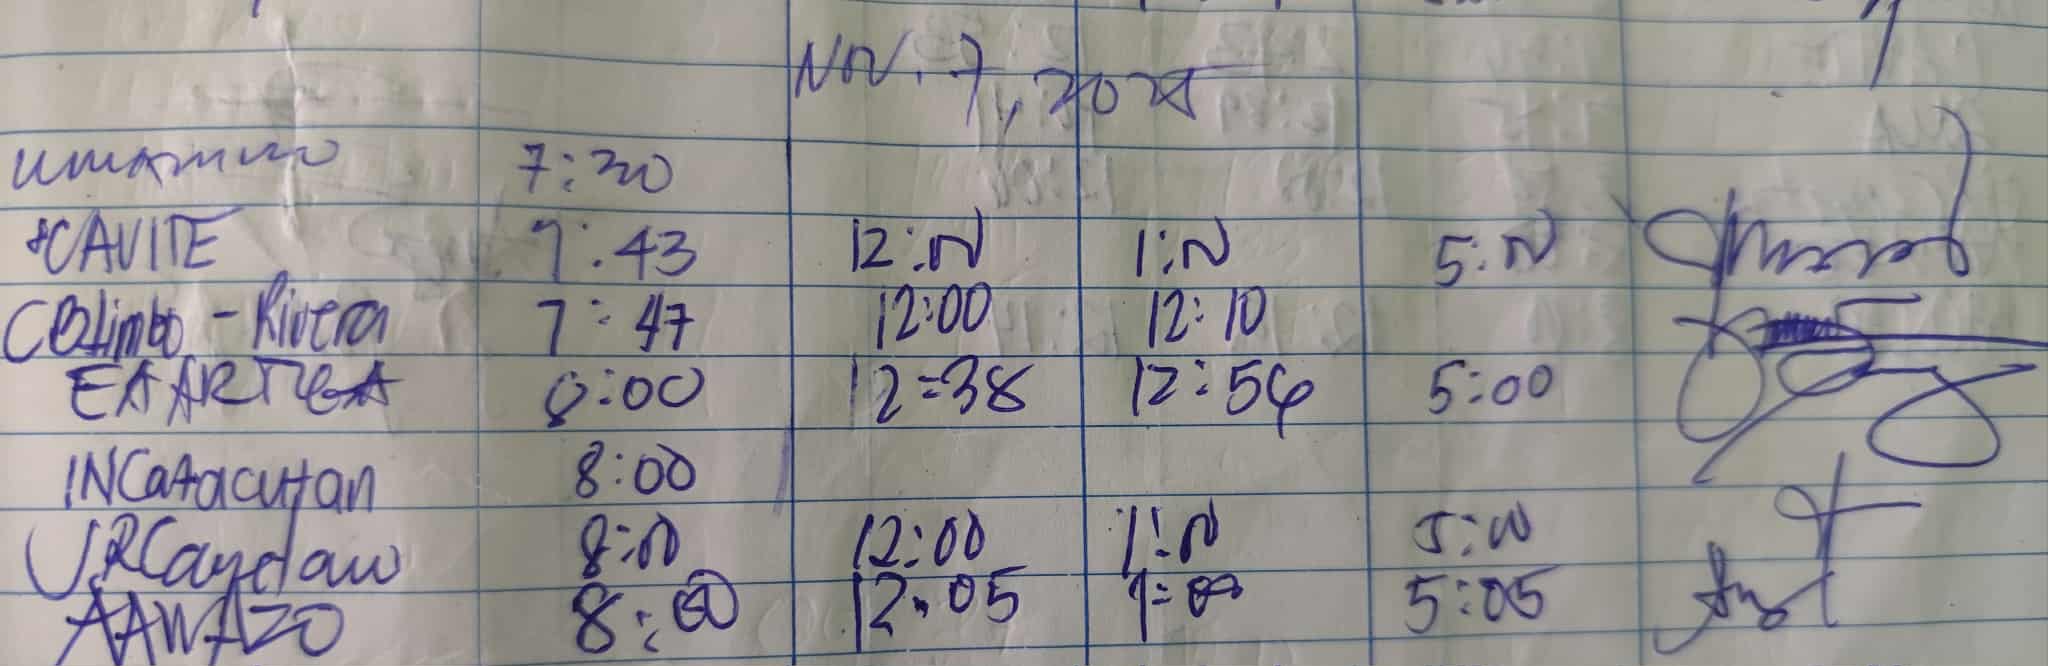 Nov. 7, 2025
7:20
CAVITE 7:43 12:00 1:00 5:00
CBLimbo - Rivera 7:47 12:00 12:10
EAARTIGA 8:00 12:38 12:56 5:00
INCatacutan 8:00
JRCaydaw 8:00 12:00 1:00 5:00
AAWAZO 8:00 12:05 1:00 5:05